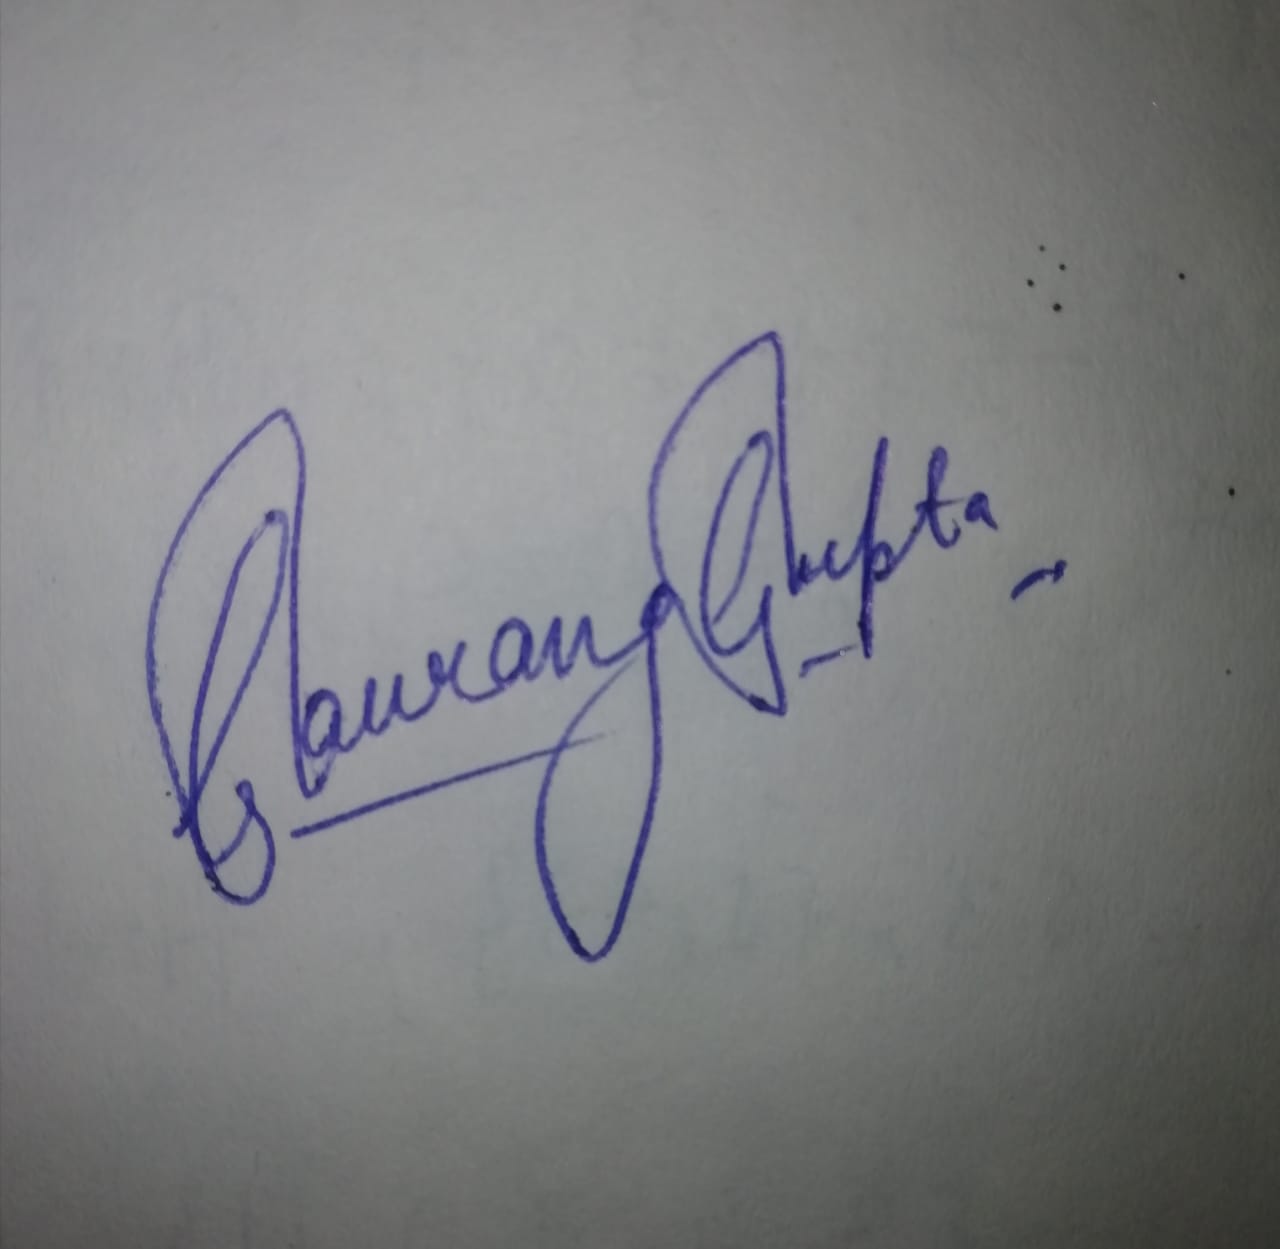 Gaurang Gupta